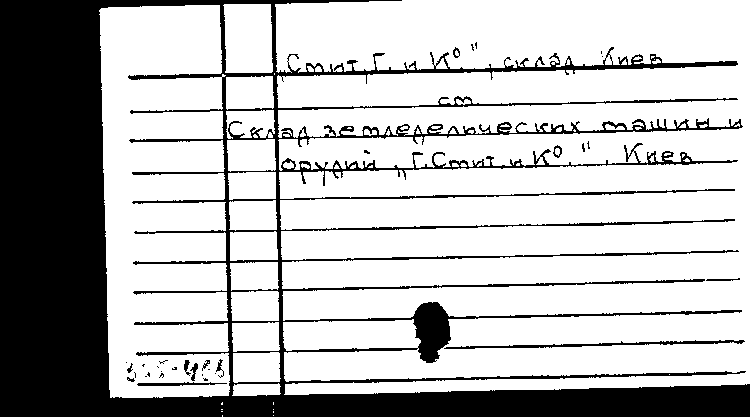 „Смит, Г. и К⁰", склад. Киев
см.
Склад земледельческих машин и
орудий „Г. Смит и К⁰.". Киев